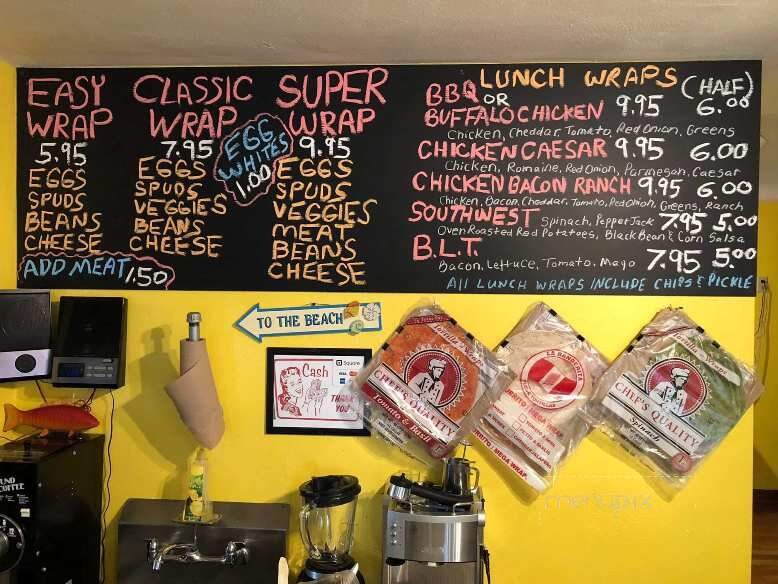 EASY
WRAP
5.95
EGGS
SPUDS
BEANS
CHEESE
ADD MEAT 1.50
CLASSIC
WRAP
7.95
EGGS
SPUDS
VEGGIES
BEANS
CHEESE
EGG
WHITES
1.00
SUPER
WRAP
9.95
EGGS
SPUDS
VEGGIES
MEAT
BEANS
CHEESE
LUNCH WRAPS (HALF)
BBQ OR
BUFFALO CHICKEN 9.95 6.00
Chicken, Cheddar, Tomato, Red Onion, Greens
CHICKEN CAESAR 9.95 6.00
Chicken, Romaine, Red Onion, Parmesan, Caesar
CHICKEN BACON RANCH 9.95 6.00
Chicken, Bacon, Cheddar, Tomato, Red Onion, Greens, Ranch
SOUTHWEST Spinach, Pepper Jack 7.95 5.00
Oven Roasted Red Potatoes, Black Bean & Corn Salsa
B.L.T. 7.95 5.00
Bacon, Lettuce, Tomato, Mayo
All LUNCH WRAPS INCLUDE CHIPS & PICKLE
TO THE BEACH
Square
Cash
THANK
YOU
Tortilla Wraps
CHEF'S QUALITY
Tomato & Basil
LA BANDERITA
BURRITO / MEGA WRAP
Tortilla Wraps
CHEF'S QUALITY
Spinach
menupix